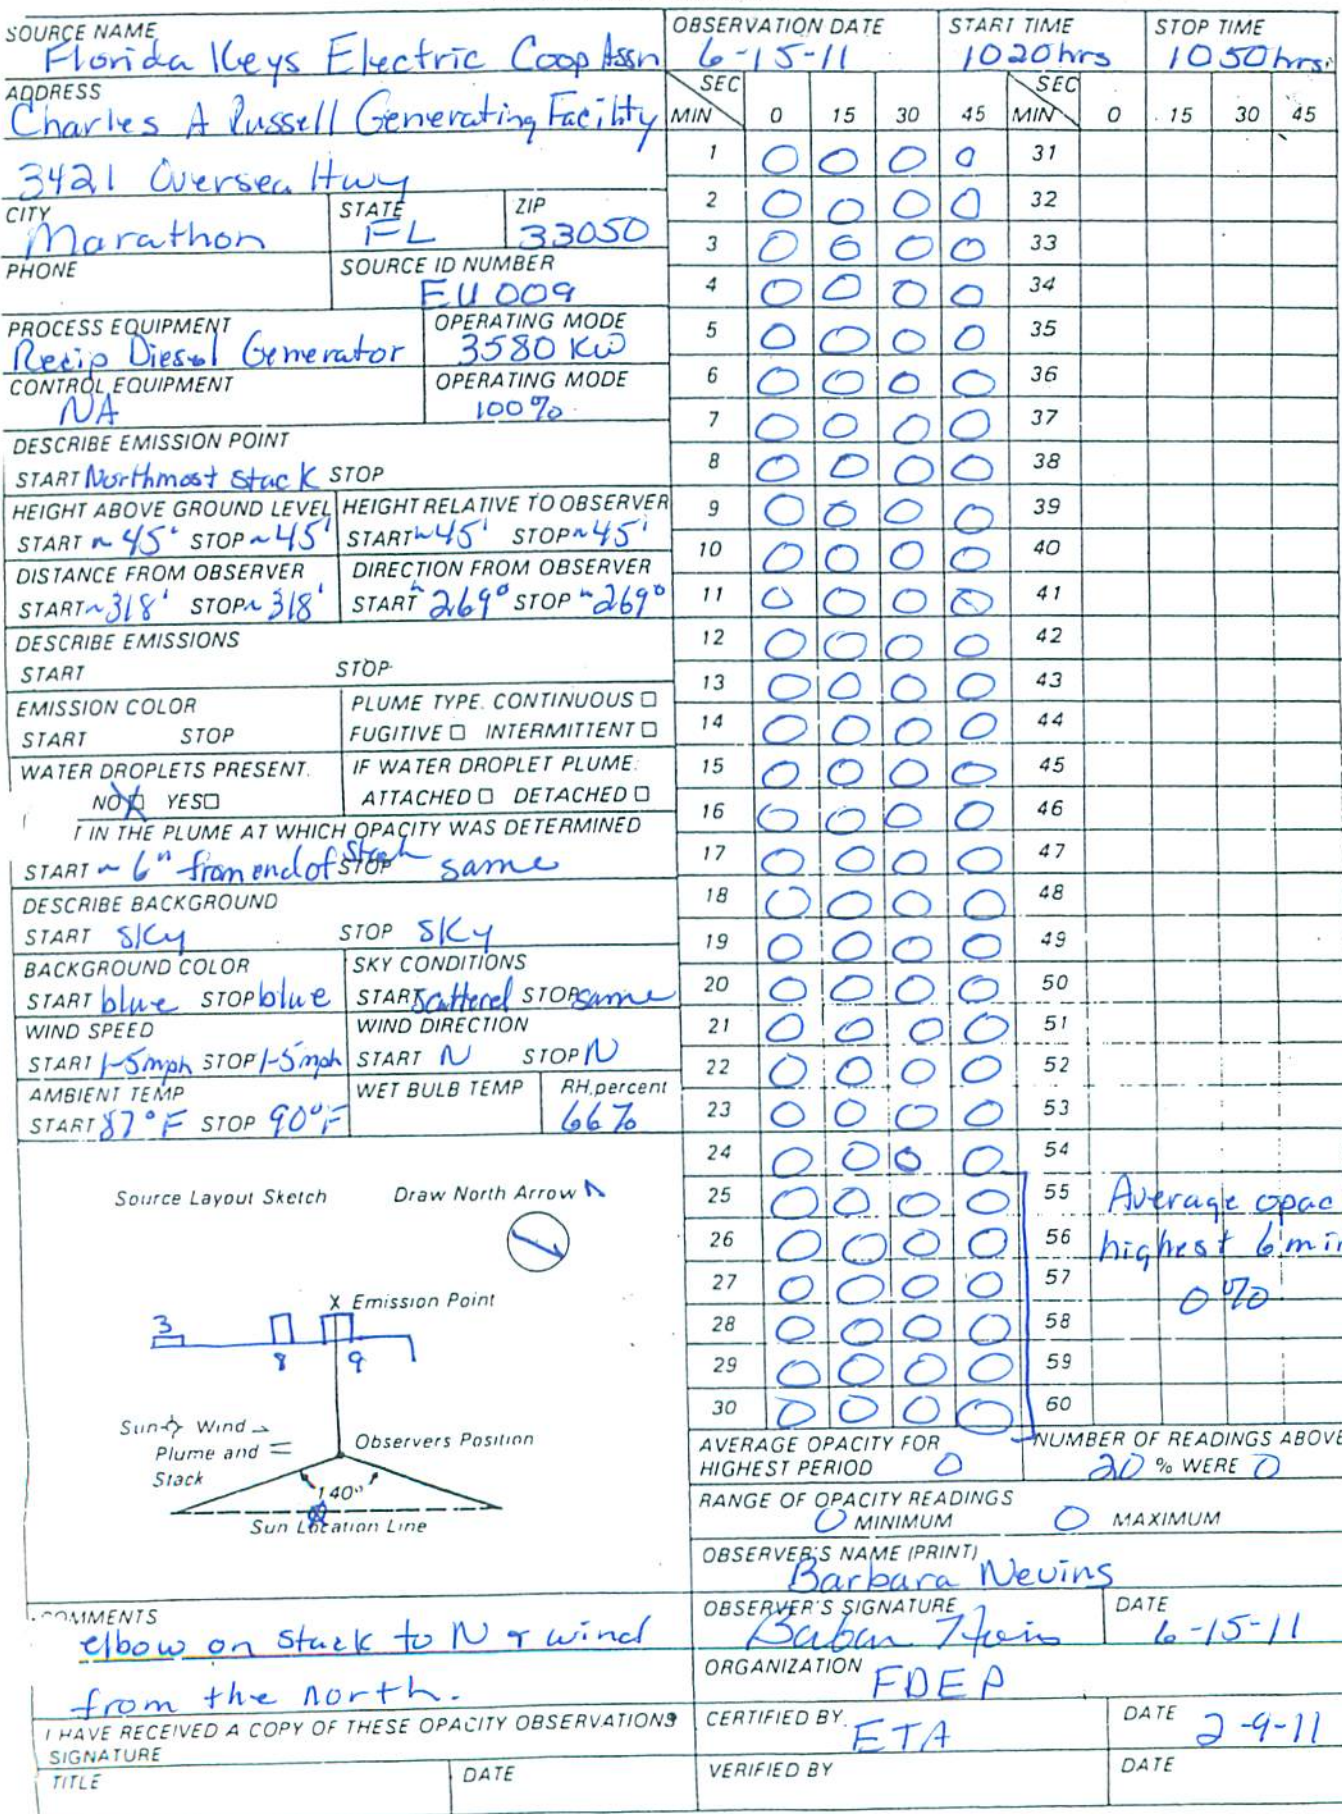 SOURCE NAME
Florida Keys Electric Coop Assn
OBSERVATION DATE
6-15-11
START TIME
1020hrs
STOP TIME
1050hrs.
ADDRESS
Charles A Russell Generating Facility
3421 Oversea Hwy
CITY
Marathon
STATE
FL
ZIP
33050
PHONE
SOURCE ID NUMBER
EU 009
PROCESS EQUIPMENT
Recip Diesel Generator
OPERATING MODE
3580 KW
CONTROL EQUIPMENT
NA
OPERATING MODE
100%
DESCRIBE EMISSION POINT
START Northmost stack STOP
HEIGHT ABOVE GROUND LEVEL
START ~ 45' STOP ~45'
HEIGHT RELATIVE TO OBSERVER
START ~45' STOP ~45'
DISTANCE FROM OBSERVER
START ~318' STOP ~318'
DIRECTION FROM OBSERVER
START ~269° STOP ~269°
DESCRIBE EMISSIONS
START STOP
EMISSION COLOR
START STOP
PLUME TYPE. CONTINUOUS □
FUGITIVE □ INTERMITTENT □
WATER DROPLETS PRESENT.
NO X YES □
IF WATER DROPLET PLUME:
ATTACHED □ DETACHED □
T IN THE PLUME AT WHICH OPACITY WAS DETERMINED
START ~ 6" from end of stack STOP same
DESCRIBE BACKGROUND
START sky STOP sky
BACKGROUND COLOR
START blue STOP blue
SKY CONDITIONS
START scattered STOP same
WIND SPEED
START 1-5mph STOP 1-5mph
WIND DIRECTION
START N STOP N
AMBIENT TEMP
START 87°F STOP 90°F
WET BULB TEMP
RH, percent
66%
Source Layout Sketch Draw North Arrow
X Emission Point
3 8 9
Sun Wind
Plume and
Stack
Observers Position
140°
Sun Location Line
COMMENTS
elbow on stack to N & wind
from the north.
I HAVE RECEIVED A COPY OF THESE OPACITY OBSERVATIONS
SIGNATURE
TITLE DATE
SEC SEC
MIN 0 15 30 45 MIN 0 15 30 45
1 0 0 0 0 31
2 0 0 0 0 32
3 0 0 0 0 33
4 0 0 0 0 34
5 0 0 0 0 35
6 0 0 0 0 36
7 0 0 0 0 37
8 0 0 0 0 38
9 0 0 0 0 39
10 0 0 0 0 40
11 0 0 0 0 41
12 0 0 0 0 42
13 0 0 0 0 43
14 0 0 0 0 44
15 0 0 0 0 45
16 0 0 0 0 46
17 0 0 0 0 47
18 0 0 0 0 48
19 0 0 0 0 49
20 0 0 0 0 50
21 0 0 0 0 51
22 0 0 0 0 52
23 0 0 0 0 53
24 0 0 0 0 54
25 0 0 0 0 55 Average opac
26 0 0 0 0 56 highest 6 min
27 0 0 0 0 57 0%
28 0 0 0 0 58
29 0 0 0 0 59
30 0 0 0 0 60
AVERAGE OPACITY FOR
HIGHEST PERIOD 0
NUMBER OF READINGS ABOVE
20 % WERE 0
RANGE OF OPACITY READINGS
0 MINIMUM 0 MAXIMUM
OBSERVER'S NAME (PRINT)
Barbara Nevins
OBSERVER'S SIGNATURE
DATE
6-15-11
ORGANIZATION
FDEP
CERTIFIED BY.
ETA
DATE
2-9-11
VERIFIED BY
DATE